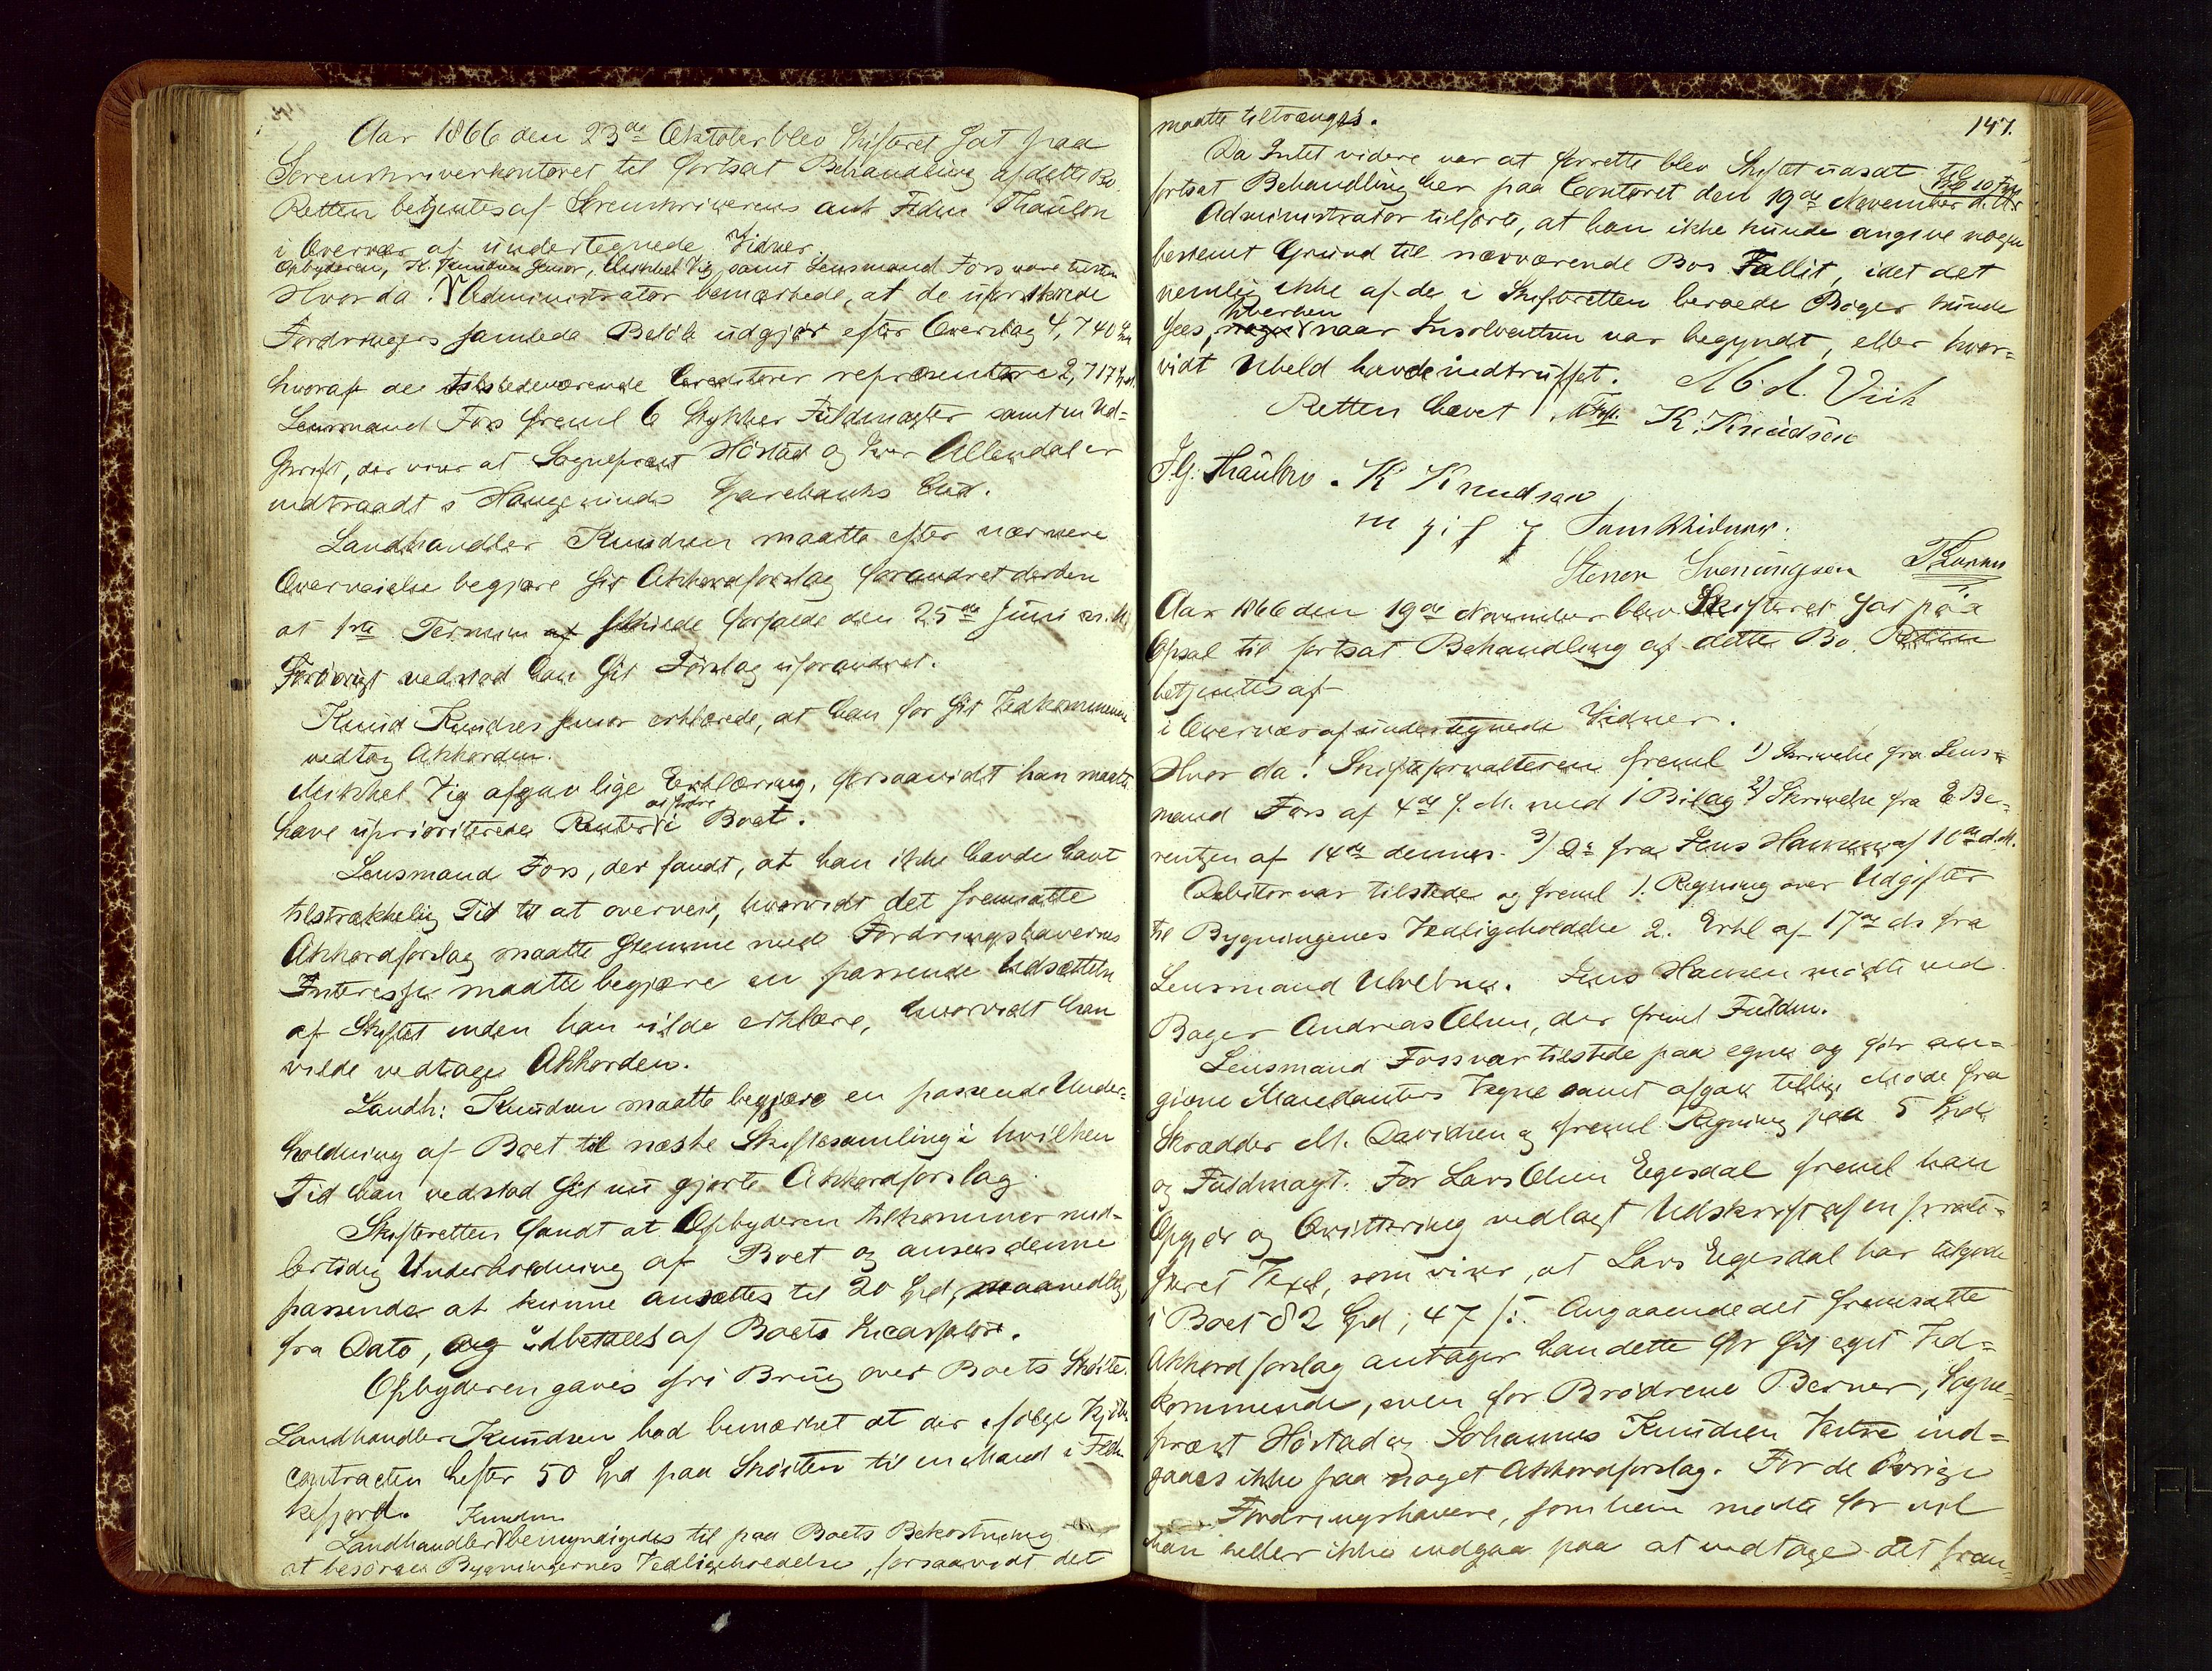 Aar 1866 den 23de Oktober blev Skifteret sat paa
Sorenskriverkontoret til fortsat Behandling af dette Bo.
Retten betjentes af Sorenskriverens aut Fldm Thaulow
i Overvær af undertegnede Vidner.
Opbyderen, K. Knudsen Senior, Mikkel Vig samt Lensmand Fors vare tilstede
Hvor da! Administrator bemærkede, at de uprioriterede
Fordringers samlede Beløb udgjør efter Overslag 4,740 Spd
hvoraf de tilstedeværende Creditorer repræsentere 2,717 Spd.
Lensmand Fors freml 6 Stykker Fuldmagter samt en Ud=
skrift, der viser at Sogneprest Hörstad og Iver Allendal er
indtraadt i Haugesunds Sparebanks Sted.
Landhandler Knudsen maatte efter nærmere
Overveielse begjære sit Akkordforslag forandret derhen
at 1ste Termin forfalde den 25de Juni n. A.
Forövrigt vedstod han sit Forslag uforandret.
Knud Knudsen Senior erklærede, at han for sit Vedkommende
vedtog Akkorden.
Mikkel Vig afgav lige Erklæring, forsaavidt han maatte
have uprioriterede Renter at fordre i Boet.
Lensmand Fors, der fandt, at han ikke havde havt
tilstrækkelig Tid til at overveie, hvorvidt det fremsatte
Akkordforslag maatte stemme med Fordringshavernes
Interesse maatte begjære en passende Udsættelse
af Skiftet inden han vilde erklære, hvorvidt han
vilde vedtage Akkorden.
Landh: Knudsen maatte begjære en passende Under=
holdning af Boet til næste Skiftesamling i hvilken
Tid han vedstod sit nu gjorte Akkordforslag.
Skifteretten fandt at Opbyderen tilkommer mid=
lertidig Underholdning af Boet og ansees denne
passende at kunne ansættes til 20 Spd, maanedlig,
fra Dato, og udbetales af Boets Incassator.
Opbyderen gaves fri Brug over Boets Skøite.
Landhandler Knudsen bad bemærket at der ifølge Kjøbe
contracten hefter 50 Spd paa Skøiten til en Mand i Flek
kefjord.
Landhandler Knudsen bemyndigedes til paa Boets Bekostning
at besørge Bygningernes Vedligeholdelse, forsaavidt det
147.
maatte tiltrænges.
Da Intet videre var at forrette blev Skiftet udsat til
fortsat Behandling her paa Contoret den 19de November d. A. Kl 10 Fm
Administrator tilførte, at han ikke kunde angive nogen
bestemt Grund til nærværende Bos Fallit, idet det
nemlig ikke af de i Skifteretten beroede Bøger kunde
sees, hverken naar Insolventsen var begyndt, eller hvor=
vidt Uheld havde indtruffet.
Retten hævet M. A. Vik
K. Knudsen
J. G. Thaulow. K Knudsen
m Vig Som Vidner:
Stener Svenningsen T Larsen
Aar 1866 den 19de November blev Skifteret sat paa
Opsal til fortsat Behandling af dette Bo. Retten
betjentes af
i Overvær af undertegnede Vidner.
Hvor da! Skifteforvalteren freml 1) Skrivelse fra Lens=
mand Fors af 4de f. M. med 1 Bilag 2) Skrivelse fra E Be=
rentzen af 14de dennes. 3) Do fra Jens Hansen af 10de d. M.
Debitor var tilstede og freml 1. Regning over Udgifter
til Bygningenes Vedligeholdelse 2. Erkl af 17de ds fra
Lensmand. Jens Hansen mødte ved
Bager Andreas Olsen, der freml Fuldm.
Lensmand Fors var tilstede paa egne og før an=
givne Mandanters Vegne samt afgav tillige Møde fra
Skrædder M. Davidsen og freml Regning paa 5 Spd
og Fuldmagt. For Lars Olsen Egesdal freml han
Opgjør og Qvittering vedlagt Udskrift af en prote=
steret Vexl, som viser, at Lars Egesdal har tilgode
i Boet 82 Spd, 47 s. Angaaende det fremsatte
Akkordforslag antager han dette for sit eget Ved=
kommende, men for Brødrene Berner, Sogne=
prest Hörstad og Johannes Knudsen Vestre ind=
gaaes ikke paa noget Akkordforslag. For de Øvrige
Fordringshavere, som han mødte for vil
han heller ikke indgaa paa at vedtage det frem=